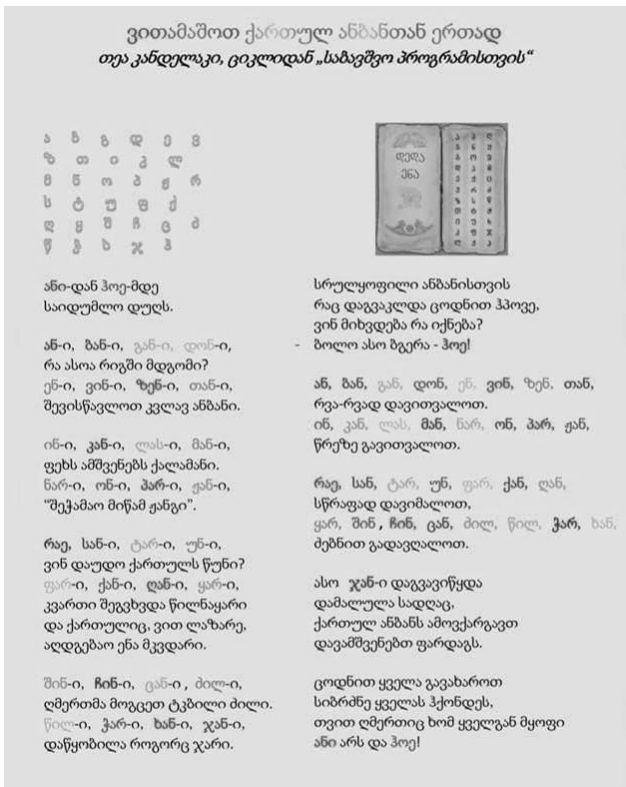 ვითამაშოთ ქართულ ანბანთან ერთად
თეა კანდელაკი, ციკლიდან „საბავშვო პროგრამისთვის“
ა ბ გ დ ე ვ
ზ თ ი კ ლ
მ ნ ო პ ჟ რ
ს ტ უ ფ ქ
ღ ყ შ ჩ ც ძ
წ ჭ ხ ჯ ჰ
დედა
ენა
ანი-დან ჰოე-მდე
საიდუმლო დუღს.
ან-ი, ბან-ი, გან-ი, დონ-ი,
რა ასოა რიგში მდგომი?
ენ-ი, ვინ-ი, ზენ-ი, თან-ი,
შევისწავლოთ კვლავ ანბანი.
ინ-ი, კან-ი, ლას-ი, მან-ი,
ფეხს ამშვენებს ქალამანი.
ნარ-ი, ონ-ი, პარ-ი, ჟან-ი,
"შეჭამაო მიწამ ჟანგი".
რაე, სან-ი, ტარ-ი, უნ-ი,
ვინ დაუდო ქართულს წუნი?
ფარ-ი, ქან-ი, ღან-ი, ყარ-ი,
კვართი შეგვხვდა წილნაყარი
და ქართულიც, ვით ლაზარე,
აღდგებაო ენა მკვდარი.
შინ-ი, ჩინ-ი, ცან-ი, ძილ-ი,
ღმერთმა მოგცეთ ტკბილი ძილი.
წილ-ი, ჭარ-ი, ხან-ი, ჯან-ი,
დაწყობილა როგორც ჯარი.
სრულყოფილი ანბანისთვის
რაც დაგვაკლდა ცოდნით ჰპოვე,
ვინ მიხვდება რა იქნება?
- ბოლო ასო ბგერა - ჰოე!
ან, ბან, გან, დონ, ენ, ვინ, ზენ, თან,
რვა-რვად დავითვალოთ.
ინ, კან, ლას, მან, ნარ, ონ, პარ, ჟან,
წრეზე გავითვალოთ.
რაე, სან, ტარ, უნ, ფარ, ქან, ღან,
სწრაფად დავიმალოთ,
ყარ, შინ, ჩინ, ცან, ძილ, წილ, ჭარ, ხან,
ძებნით გადავღალოთ.
ასო ჯან-ი დაგვავიწყდა
დამალულა სადღაც,
ქართულ ანბანს ამოვქარგავთ
დავამშვენებთ ფარდაგს.
ცოდნით ყველა გავახაროთ
სიბრძნე ყველას ჰქონდეს,
თვით ღმერთიც ხომ ყველგან მყოფი
ანი არს და ჰოე!